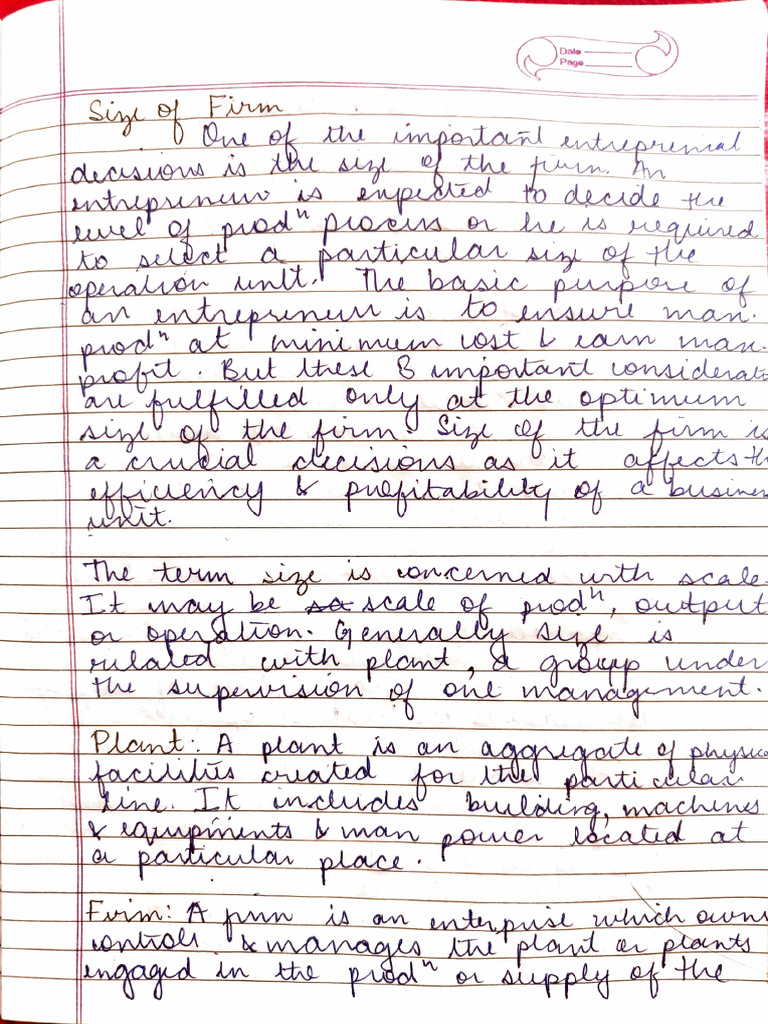 Date
Page
Size of Firm
One of the important entreprenial
decisions is the size of the firm. An
entrepreneur is expected to decide the
level of prodⁿ process or he is required
to select a particular size of the
operation unit. The basic purpose of
an entrepreneur is to ensure max.
prodⁿ at minimum cost & earn max.
profit. But these 3 important considerat
are fulfilled only at the optimum
size of the firm. Size of the firm is
a crucial decisions as it affects th
efficiency & profitability of a busines
unit.
The term size is concerned with scale.
It may be scale of prodⁿ, output
or operation. Generally size is
related with plant, a group under
the supervision of one management.
Plant: A plant is an aggregate of physica
facilities created for the particular
line. It includes building, machines
& equipments & man power located at
a particular place.
Firm: A firm is an enterprise which owns
controls & manages the plant or plants
engaged in the prodⁿ or supply of the